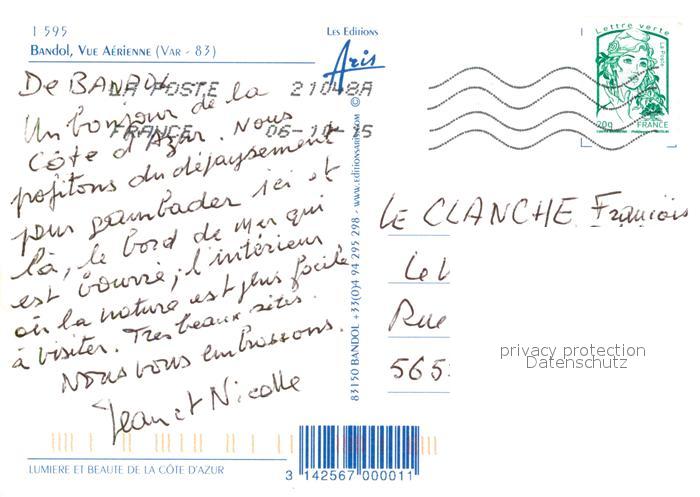 1 595
Bandol, Vue Aérienne (Var - 83)
Les Editions
Aris
LA POSTE 21048A
FRANCE 06-10-15
Lettre verte
La Poste
20g FRANCE
De BANDOL
Un bonjour de la
Côte d'Azur. Nous
profitons du dépaysement
pour gambader ici et
là, le bord de mer qui
est bourré, l'intérieur
où la nature est plus facile
à visiter. Tres beaux sites.
Nous vous embrassons.
Jean et Nicolle
83150 BANDOL +33(0)4 94 295 298 - www.editionsaris.com ©
LE CLANCHE François
Le
Rue
565
privacy protection
Datenschutz
LUMIERE ET BEAUTE DE LA CÔTE D'AZUR
3 142567 000011